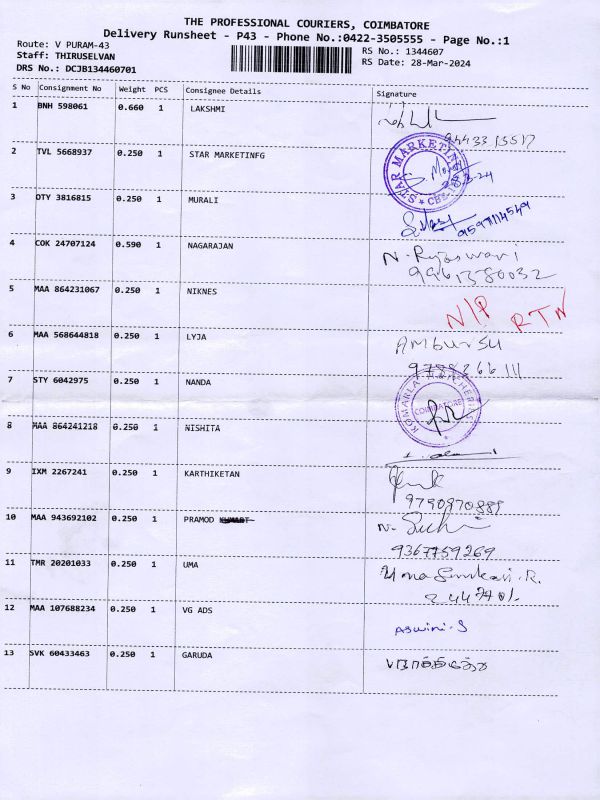 THE PROFESSIONAL COURIERS, COIMBATORE
Delivery Runsheet - P43 - Phone No.:0422-3505555 - Page No.:1
Route: V PURAM-43
Staff: THIRUSELVAN
DRS No.: DCJB134460701
RS No.: 1344607
RS Date: 28-Mar-2024
S No Consignment No Weight PCS Consignee Details Signature
1 BNH 598061 0.660 1 LAKSHMI
2 TVL 5668937 0.250 1 STAR MARKETINFG
STAR MARKETING
3 DTY 3816815 0.250 1 MURALI
9597114549
4 COK 24707124 0.590 1 NAGARAJAN
N. Rajaswari
9961380032
5 MAA 864231067 0.250 1 NIKNES
N/P RTN
6 MAA 568644818 0.250 1 LYJA
7 STY 6042975 0.250 1 NANDA
COIMBATORE
8 MAA 864241218 0.250 1 NISHITA
9 IXM 2267241 0.250 1 KARTHIKETAN
9790870889
10 MAA 943692102 0.250 1 PRAMOD
9367759269
11 TMR 20201033 0.250 1 UMA
12 MAA 107688234 0.250 1 VG ADS
Aswini.S
13 SVK 60433463 0.250 1 GARUDA